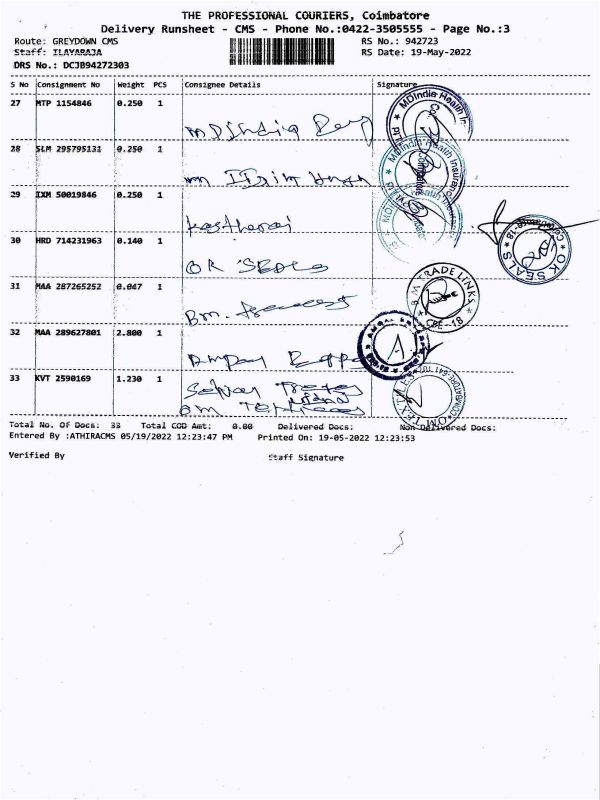 THE PROFESSIONAL COURIERS, Coimbatore
Delivery Runsheet - CMS - Phone No.:0422-3505555 - Page No.:3
Route: GREYDOWN CMS RS No.: 942723
Staff: ILAYARAJA RS Date: 19-May-2022
DRS No.: DCJB94272303
S No Consignment No Weight PCS Consignee Details Signature
27 MTP 1154846 0.250 1 MDIndia
MDIndia Health In
28 SLM 295795131 0.250 1
MDIndia Health Insurance
Coimbatore
29 IXM 50019846 0.250 1
30 HRD 714231963 0.140 1 OK SEALS
O K SEALS
31 MAA 287265252 0.047 1 B.M.
B.M TRADE LINKS
CBE-18
32 MAA 289627801 2.800 1
A
33 KVT 2590169 1.230 1
OM TEXTILES
Total No. Of Docs: 33 Total COD Amt: 0.00 Delivered Docs: Non Delivered Docs:
Entered By :ATHIRACMS 05/19/2022 12:23:47 PM Printed On: 19-05-2022 12:23:53
Verified By Staff Signature